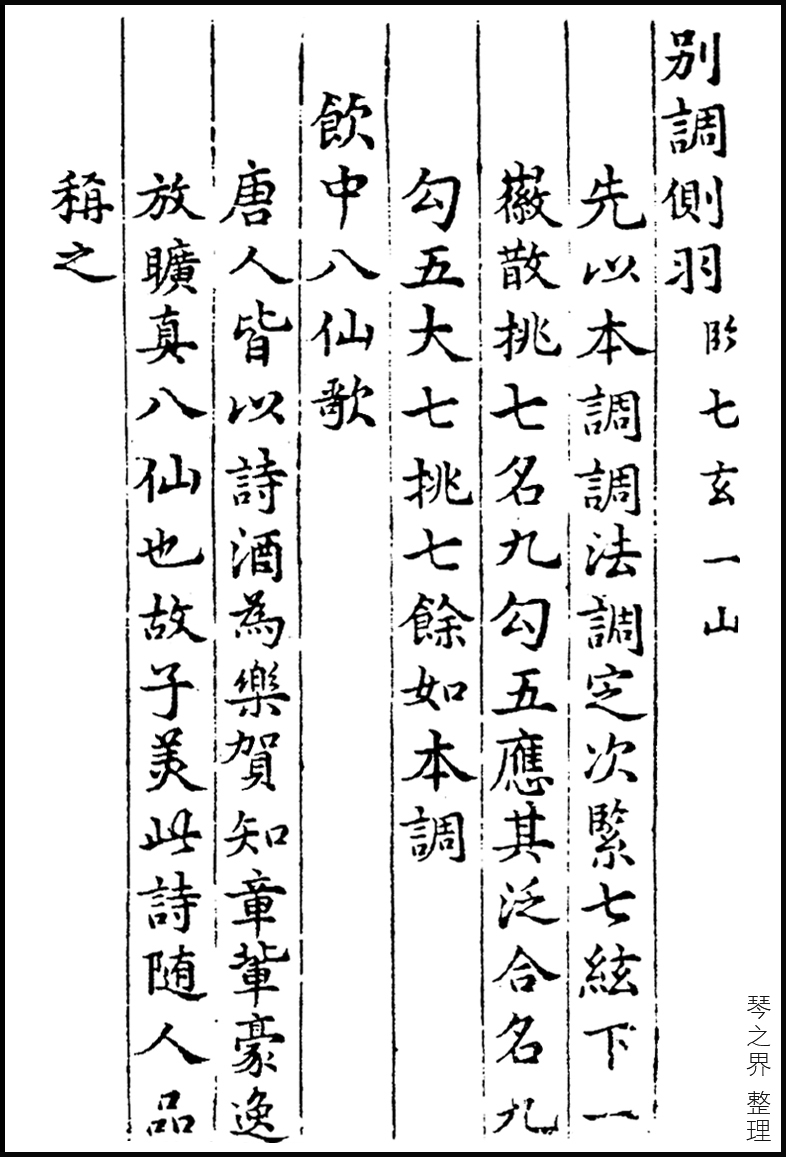 別調側羽 七玄一山
先以本調調法調定次緊七絃下一
徽散挑七名九勾五應其泛合名九
勾五大七挑七餘如本調
飲中八仙歌
唐人皆以詩酒為樂賀知章輩豪逸
放曠真八仙也故子美此詩随人品
稱之
琴之界 整理